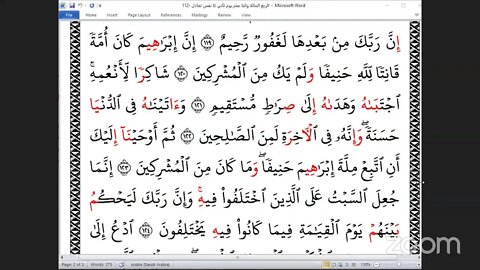 الربع المائة واثنا عشر يوم تأتي كل نفس تجادل -112 - Microsoft Word
إِنَّ رَبَّكَ مِنۢ بَعۡدِهَا لَغَفُورٞ رَّحِيمٌ ۝١١٩ إِنَّ إِبۡرَٰهِيمَ كَانَ أُمَّةٗ
قَانِتٗا لِّلَّهِ حَنِيفٗا وَلَمۡ يَكُ مِنَ ٱلۡمُشۡرِكِينَ ۝١٢٠ شَاكِرٗا لِّأَنۡعُمِهِۚ
ٱجۡتَبَىٰهُ وَهَدَىٰهُ إِلَىٰ صِرَٰطٖ مُّسۡتَقِيمٖ ۝١٢١ وَءَاتَيۡنَٰهُ فِي ٱلدُّنۡيَا
حَسَنَةٗۖ وَإِنَّهُۥ فِي ٱلۡأٓخِرَةِ لَمِنَ ٱلصَّٰلِحِينَ ۝١٢٢ ثُمَّ أَوۡحَيۡنَآ إِلَيۡكَ
أَنِ ٱتَّبِعۡ مِلَّةَ إِبۡرَٰهِيمَ حَنِيفٗاۖ وَمَا كَانَ مِنَ ٱلۡمُشۡرِكِينَ ۝١٢٣ إِنَّمَا
جُعِلَ ٱلسَّبۡتُ عَلَى ٱلَّذِينَ ٱخۡتَلَفُواْ فِيهِۚ وَإِنَّ رَبَّكَ لَيَحۡكُمُ
بَيۡنَهُمۡ يَوۡمَ ٱلۡقِيَٰمَةِ فِيمَا كَانُواْ فِيهِ يَخۡتَلِفُونَ ۝١٢٤ ٱدۡعُ إِلَىٰ
zoom
Page: 2 of 2 Words: 275 Arabic (Saudi Arabia)